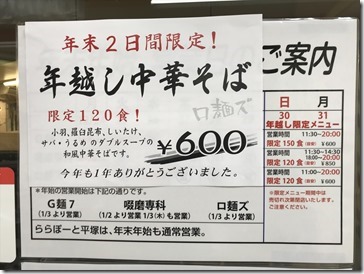 年末2日間限定!
年越し中華そば
限定120食!
ロ麺ズ
小羽、羅臼昆布、しいたけ、
サバ・うるめ のダブルスープの
和風中華そばです。
¥600
今年も1年ありがとうございました。
*年始の営業開始は下記の通りです。
G麺7
(1/3より営業)
啜磨専科
(1/2より営業 1/3(木)も営業)
ロ麺ズ
(1/3より営業)
ららぽーと平塚は、年末年始も通常営業。
ご案内
日 月
30 31
年越し限定メニュー
営業時間
11:30~20:00
限定 150 食
営業時間
11:30~14:30
18:00~20:00
限定 120 食
営業時間
11:00~20:00
限定 120 食
※限定メニュー期間中は
売切れ次第閉店いたします。
ご注意ください。